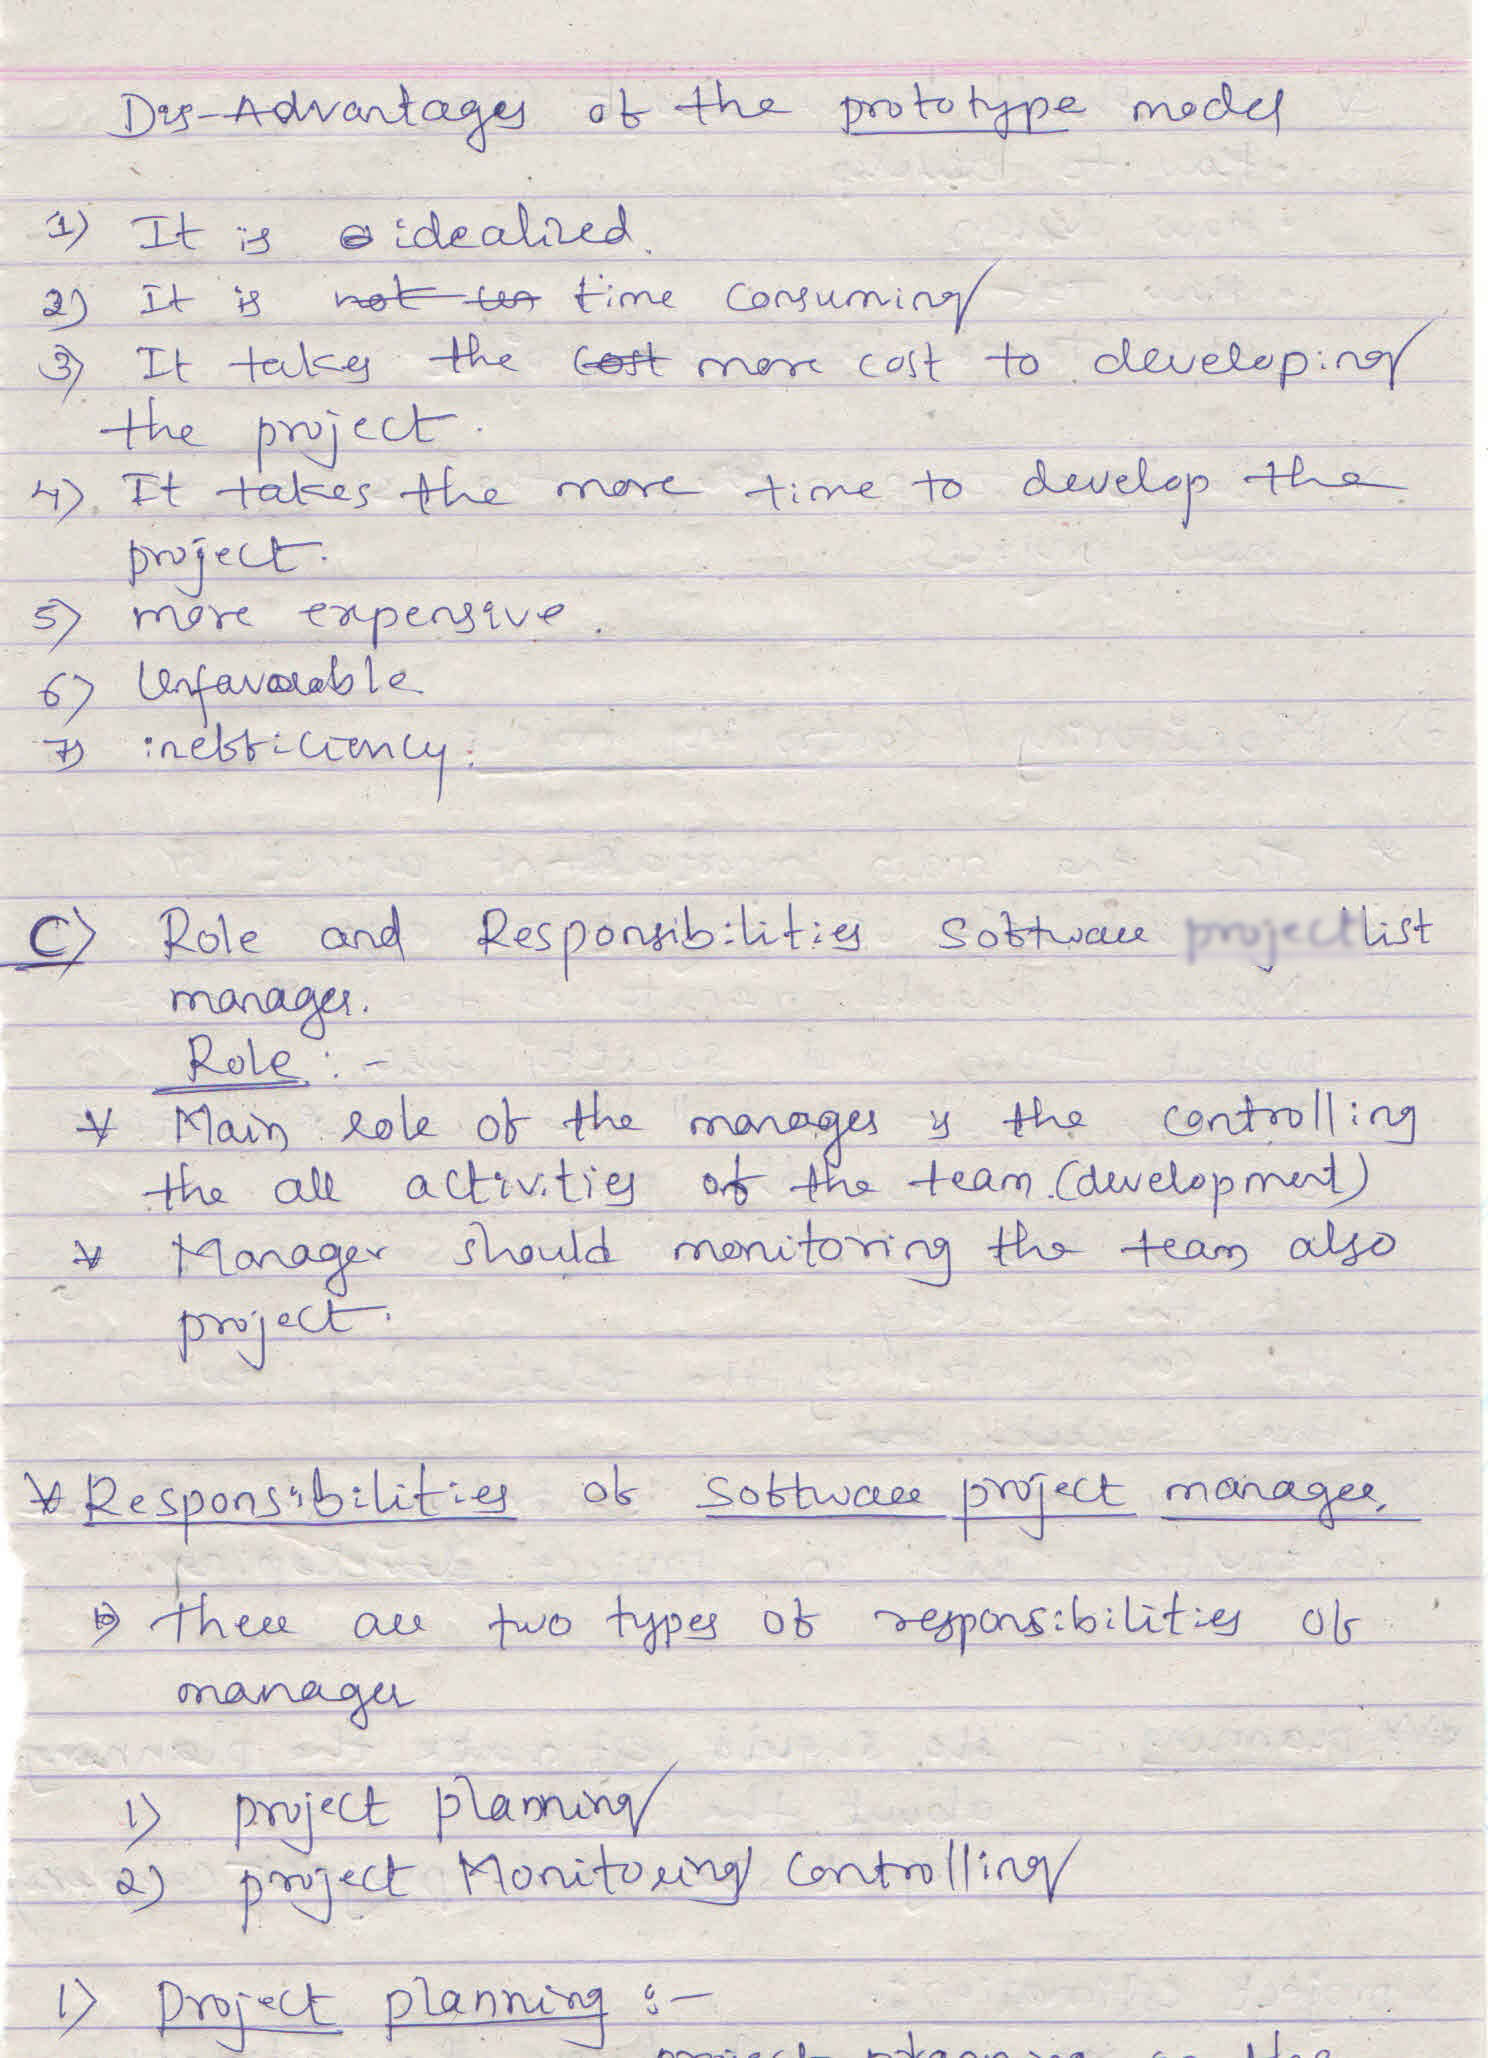 Dis-Advantages of the prototype model
1) It is idealized.
2) It is not time consuming
3) It takes the cost more cost to developing
the project.
4) It takes the more time to develop the
project.
5) more expensive.
6) Unfavourable
7) inefficiency.
C) Role and Responsibilities Software project list
manager.
Role :-
* Main role of the manager is the controlling
the all activities of the team (development)
* Manager should monitoring the team also
project.
* Responsibilities of Software project manager.
=> there are two types of responsibilities of
manager
1) project planning
2) project Monitoring controlling
1) Project planning :-
project planning is the